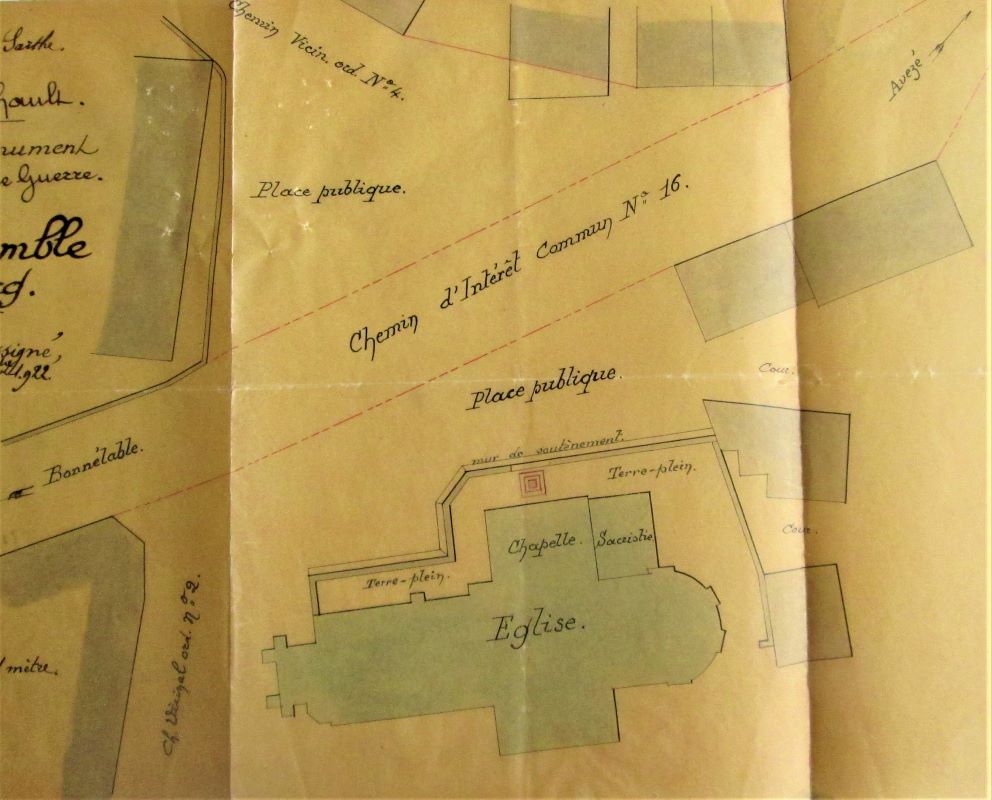 Sarthe.
hault.
nument
e Guerre.
mble
g.
signé,
1922.
Chemin Vicin. ord. Nº 4.
Avezé
Place publique.
Chemin d'Intérêt Commun Nº 16.
Place publique.
Cour.
Bonnétable.
mur de soutènement.
Terre-plein.
Cour.
Chapelle.
Sacristie
Terre-plein.
Eglise.
Ch. Vicinal ord. Nº 2.
mètre.